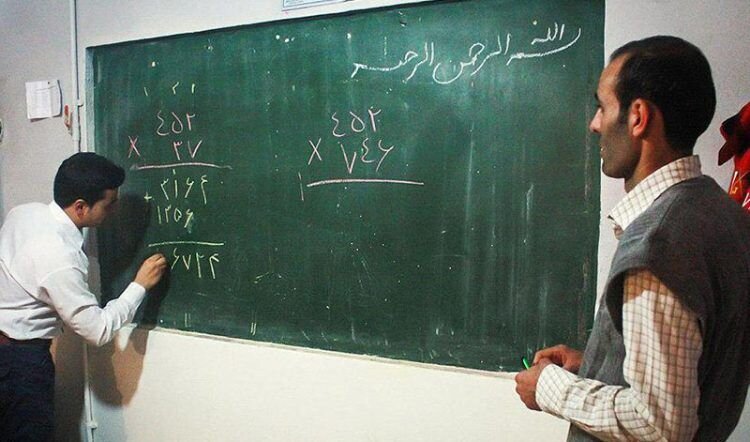 بسم الله الرحمن الرحیم
۱ ۳ ۱
٤۵۲
× ۳۷
+ ۳۱۶۴
۱۳۵۶
۶۷۲۴
٤۵۲
× ۷٤۶